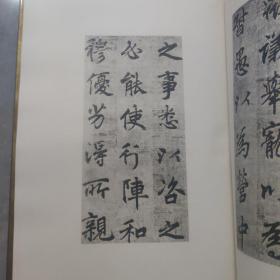 之事悉以咨之
必能使行陣和
穆優劣得所親
舉寵以為
愚以為營中